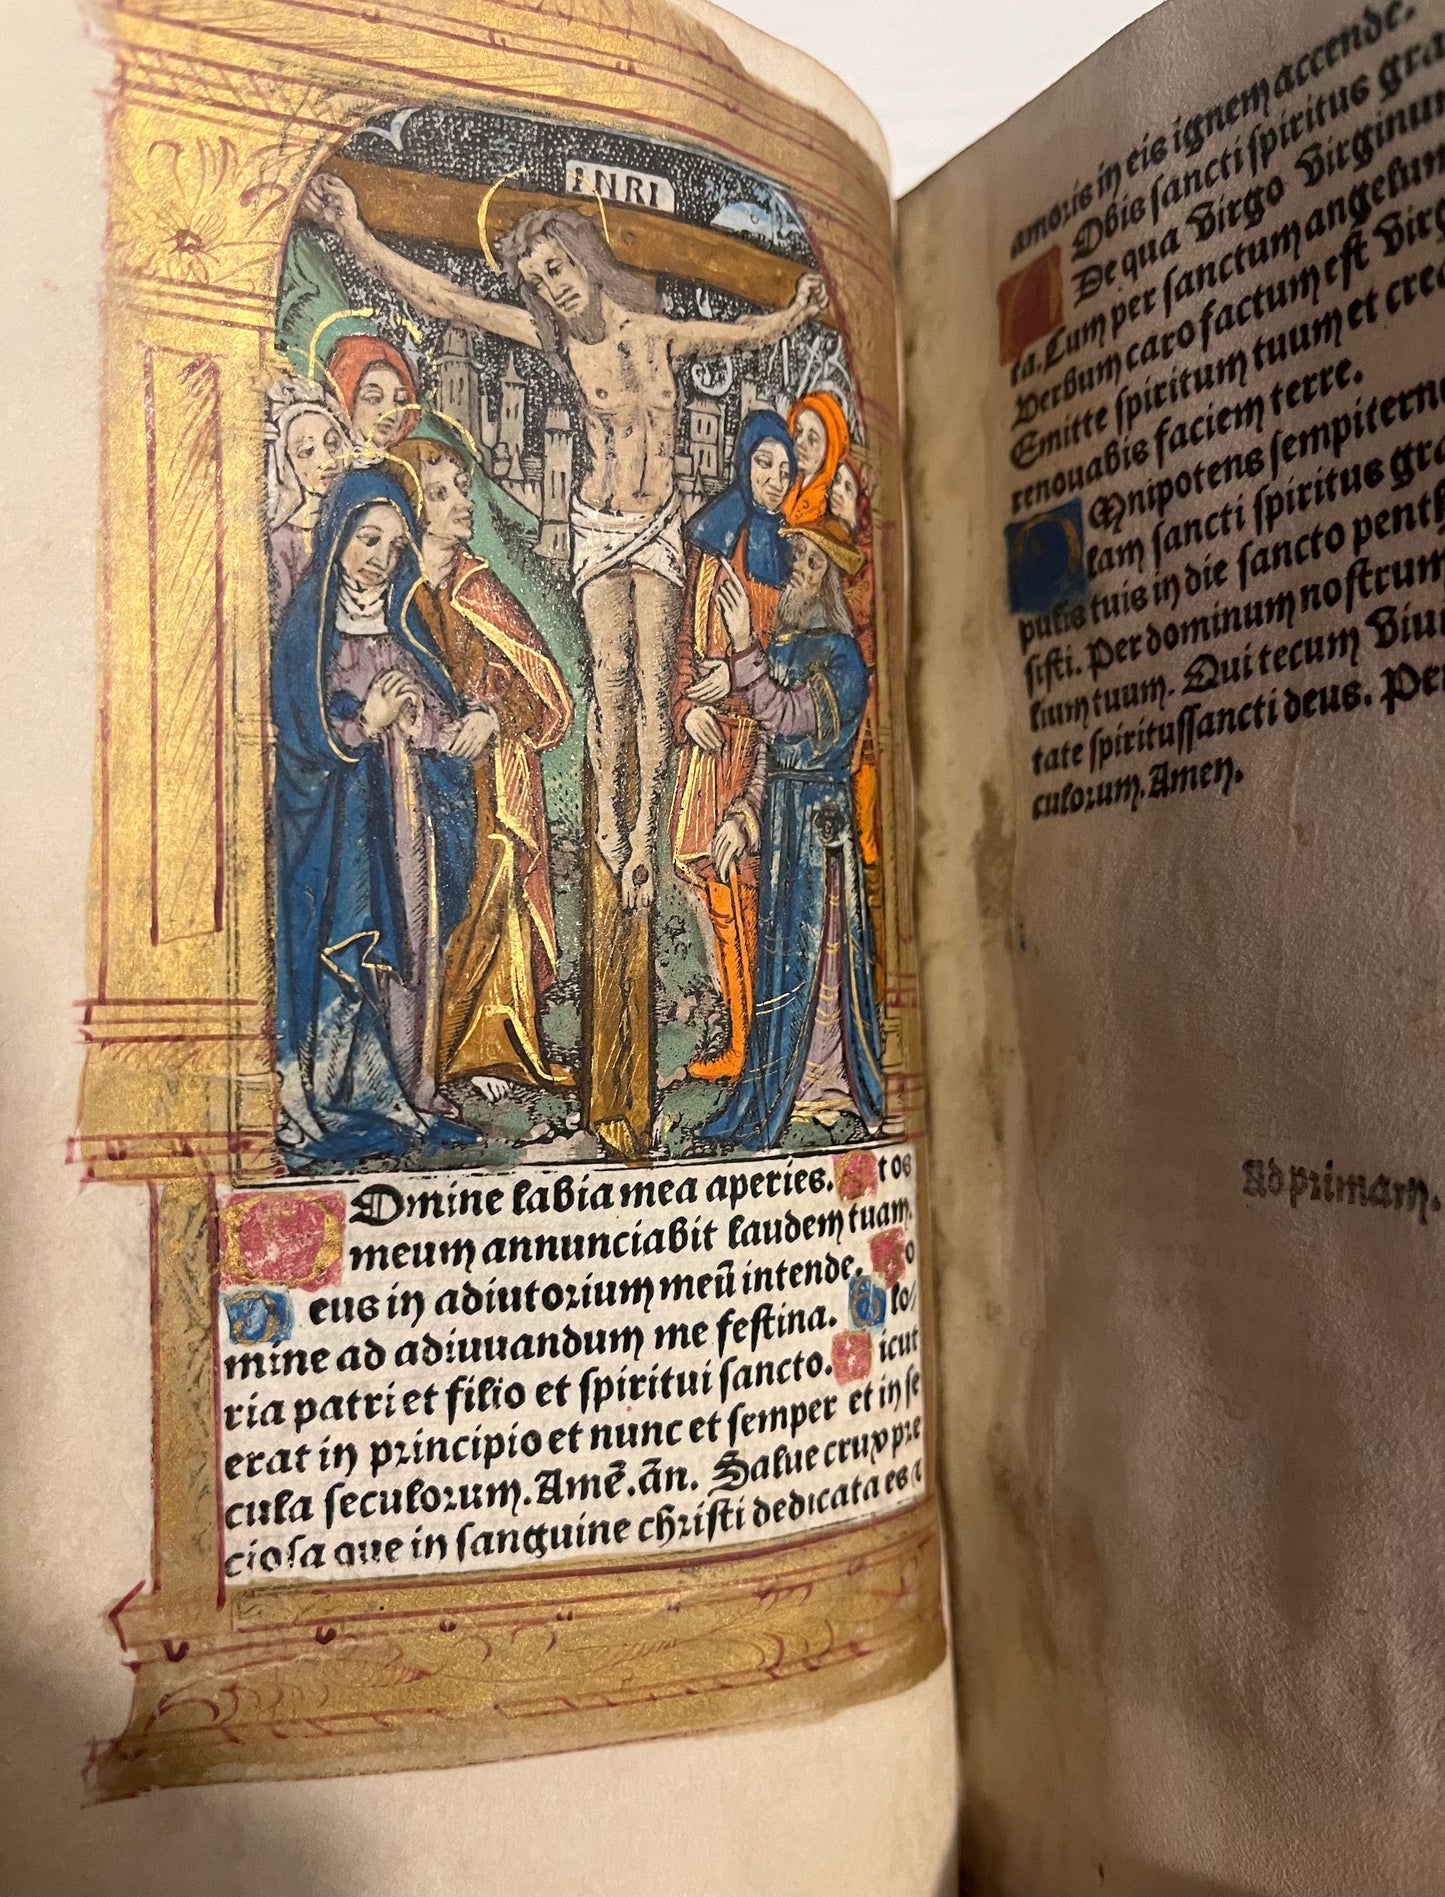 INRI
Domine labia mea aperies. Et os
meum annunciabit laudem tuam.
Deus in adiutorium meū intende. Do
mine ad adiuuandum me festina. Glo/
ria patri et filio et spiritui sancto. Sicut
erat in principio et nunc et semper et in se
cula seculorum. Amē. ān. Salue crux pre
ciosa que in sanguine christi dedicata es
amoris in eis ignem accende.
Nobis sancti spiritus gra
De qua Virgo Virginum
ta. Cum per sanctum angelum
Verbum caro factum est Virg
Emitte spiritum tuum et crea
renouabis faciem terre.
Omnipotens sempiterne
lam sancti spiritus gra
pulis tuis in die sancto penth
sisti. Per dominum nostrum
lium tuum. Qui tecum Viui
tate spiritussancti deus. Per
culorum. Amen.
Ad primam.